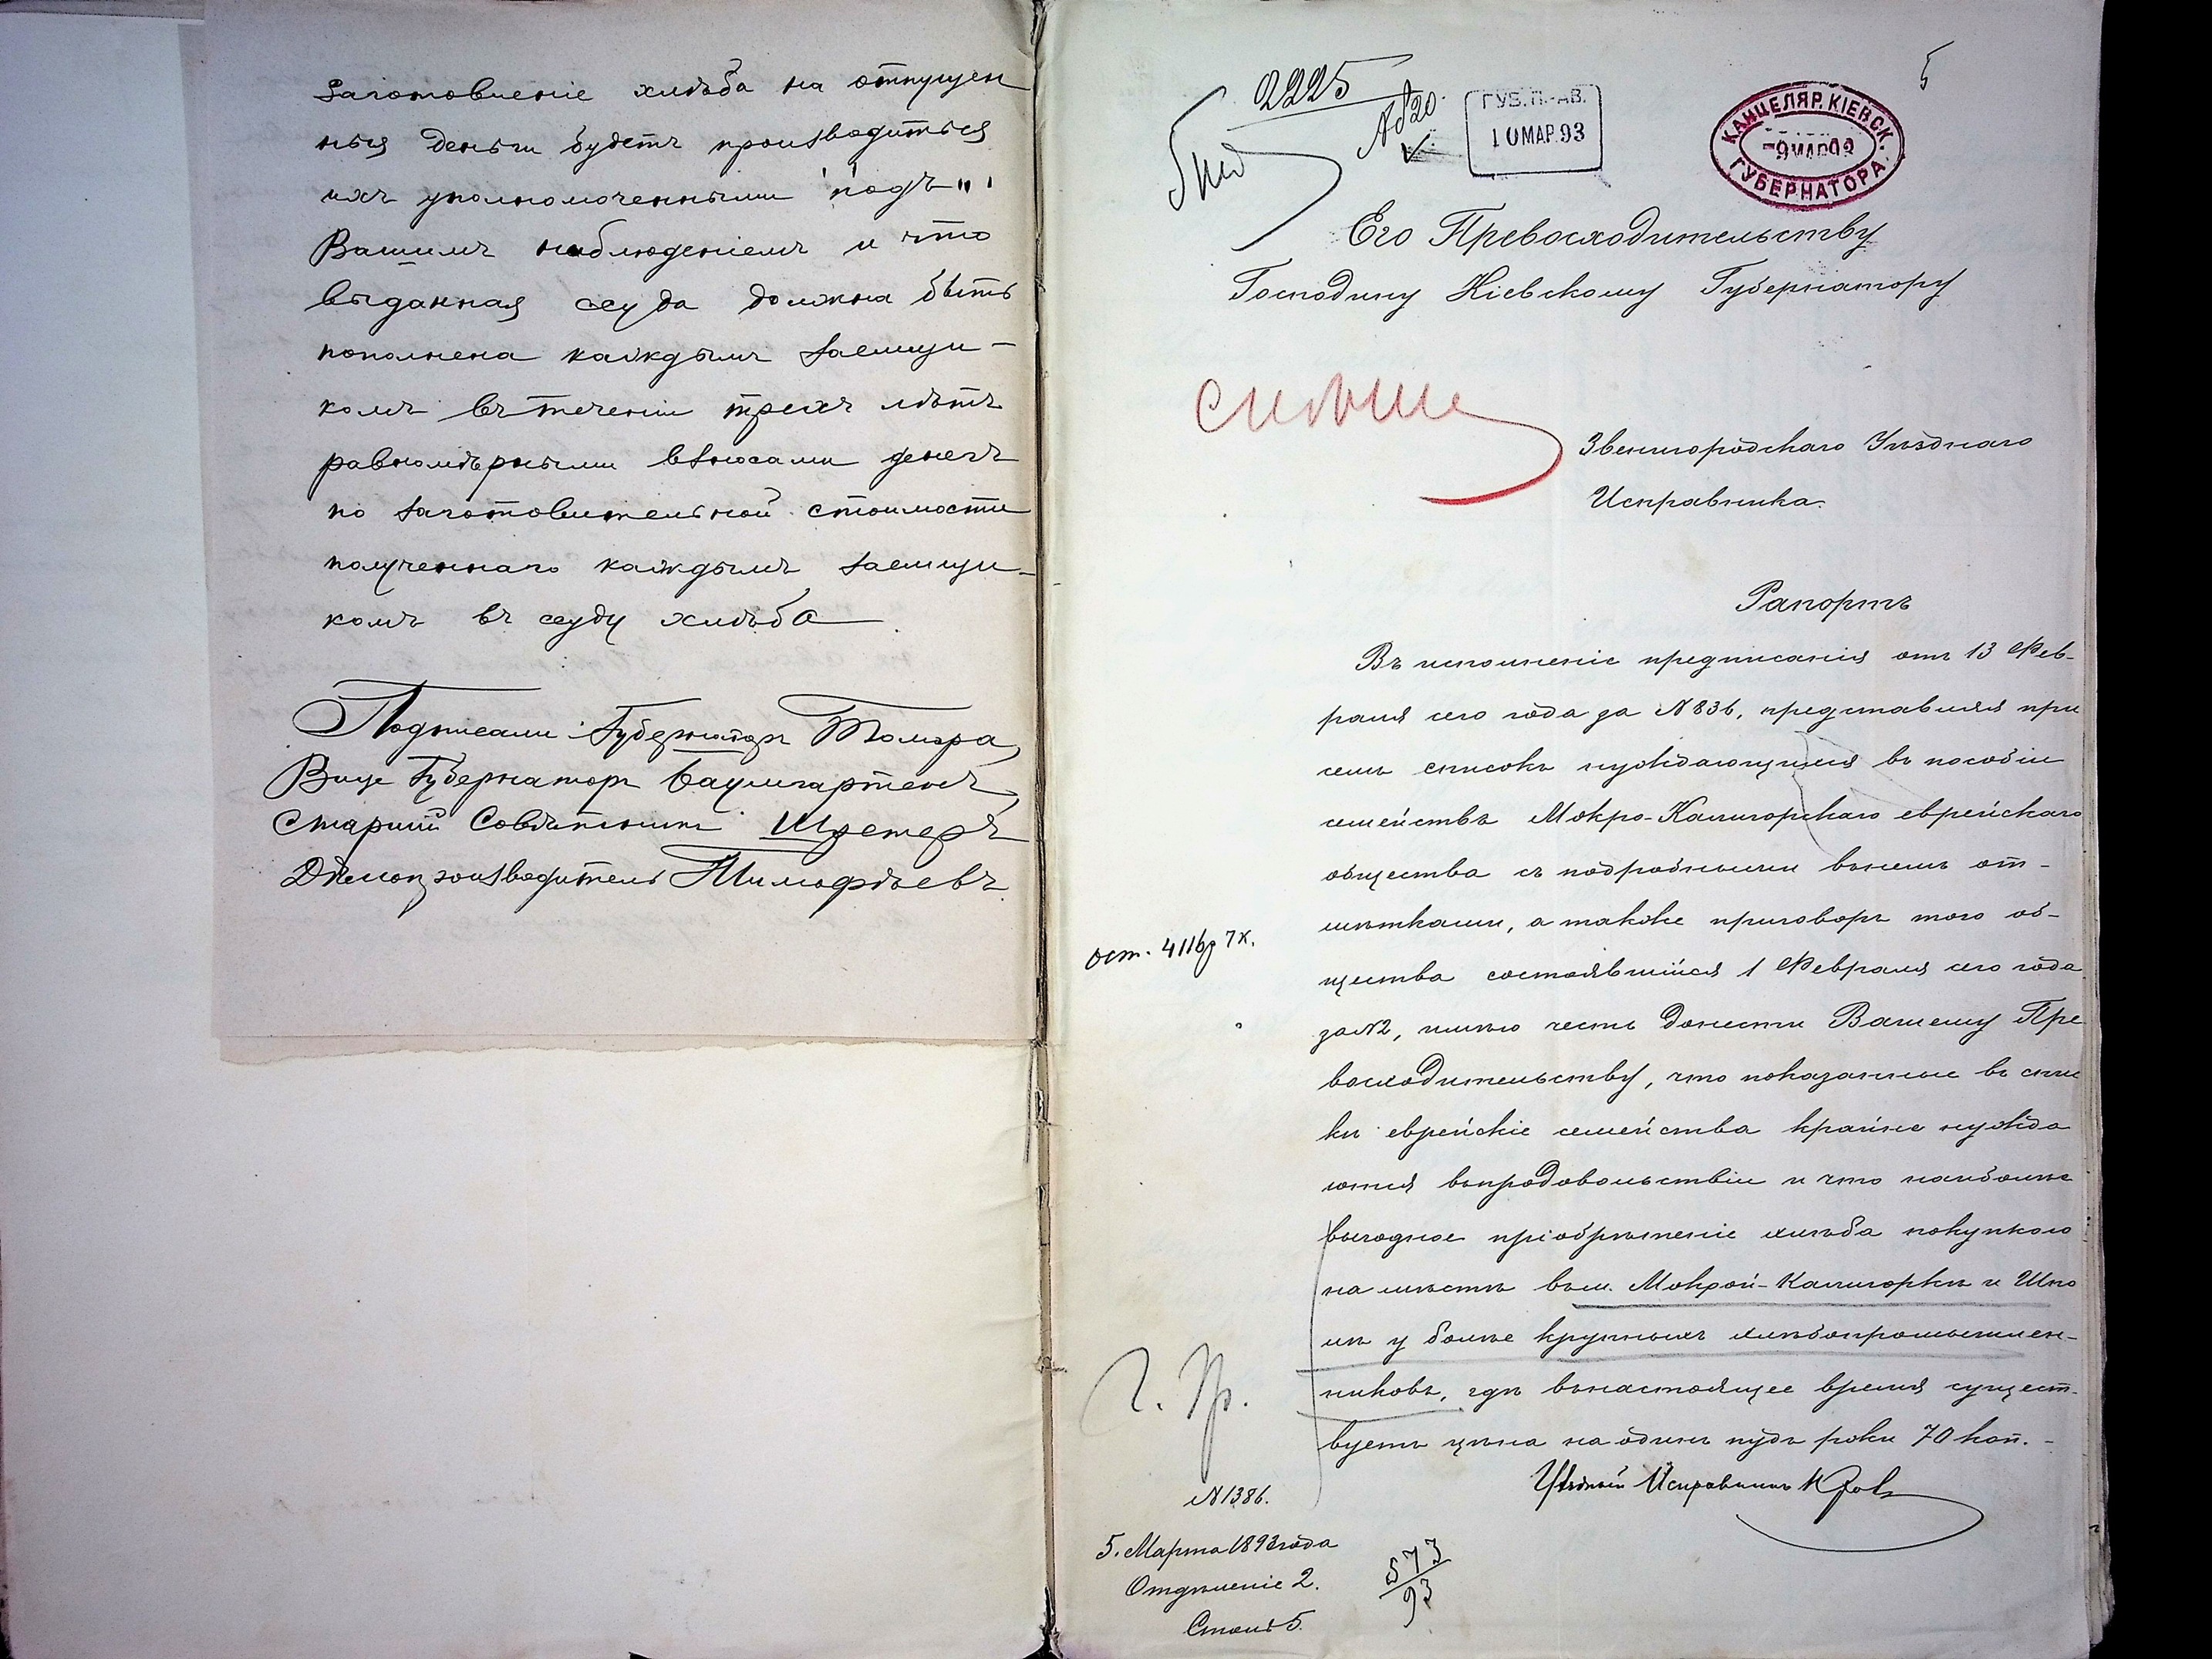 Заготовленіе хлѣба на отпущен
ныя деньги будетъ производиться
ихъ уполномоченными подъ
Вашимъ наблюденіемъ и что
выданная ссуда должна быть
пополнена каждымъ заемщи-
комъ въ теченіи трехъ лѣтъ
равномѣрными взносами денегъ
по заготовительной стоимости
полученнаго каждымъ заемщи-
комъ въ ссуду хлѣба
Подписали: Губернаторъ Томара,
Вице Губернаторъ Баумгартенъ,
Старшій Совѣтникъ Шретеръ
Дѣлопроизводитель Тимофѣевъ.
5
2225
ГУБ. П.-АВ.
10 МАР. 93
КАНЦЕЛЯР. КІЕВСК.
ГУБЕРНАТОРА
Его Превосходительству
Господину Кіевскому Губернатору
Звенигородскаго Уѣзднаго
Исправника.
Рапортъ
Въ исполненіе предписанія отъ 13 Фев-
раля сего года за №836, представляя при
семъ списокъ нуждающихся въ пособіи
семействъ Мокро-Калигорскаго еврейскаго
общества съ подробными въ немъ от-
мѣтками, а также приговоръ того об-
щества состоявшійся 1 Февраля сего года
за №2, имѣю честь донести Вашему Пре
восходительству, что показанные въ спис
кѣ еврейскіе семейства крайне нужда
ются въ продовольствіи и что наиболѣе
выгодное пріобрѣтеніе хлѣба покупкою
на мѣстѣ въ м. Мокрой-Калигоркѣ и Шпо
лѣ у болѣе крупныхъ хлѣбопромышлен-
никовъ, гдѣ въ настоящее время сущест-
вуетъ цѣна на одинъ пудъ ржи 70 коп.-
Уѣздный Исправникъ
№1386.
5. Марта 1893 года
Отдѣленіе 2.
Столъ 5.
573
93